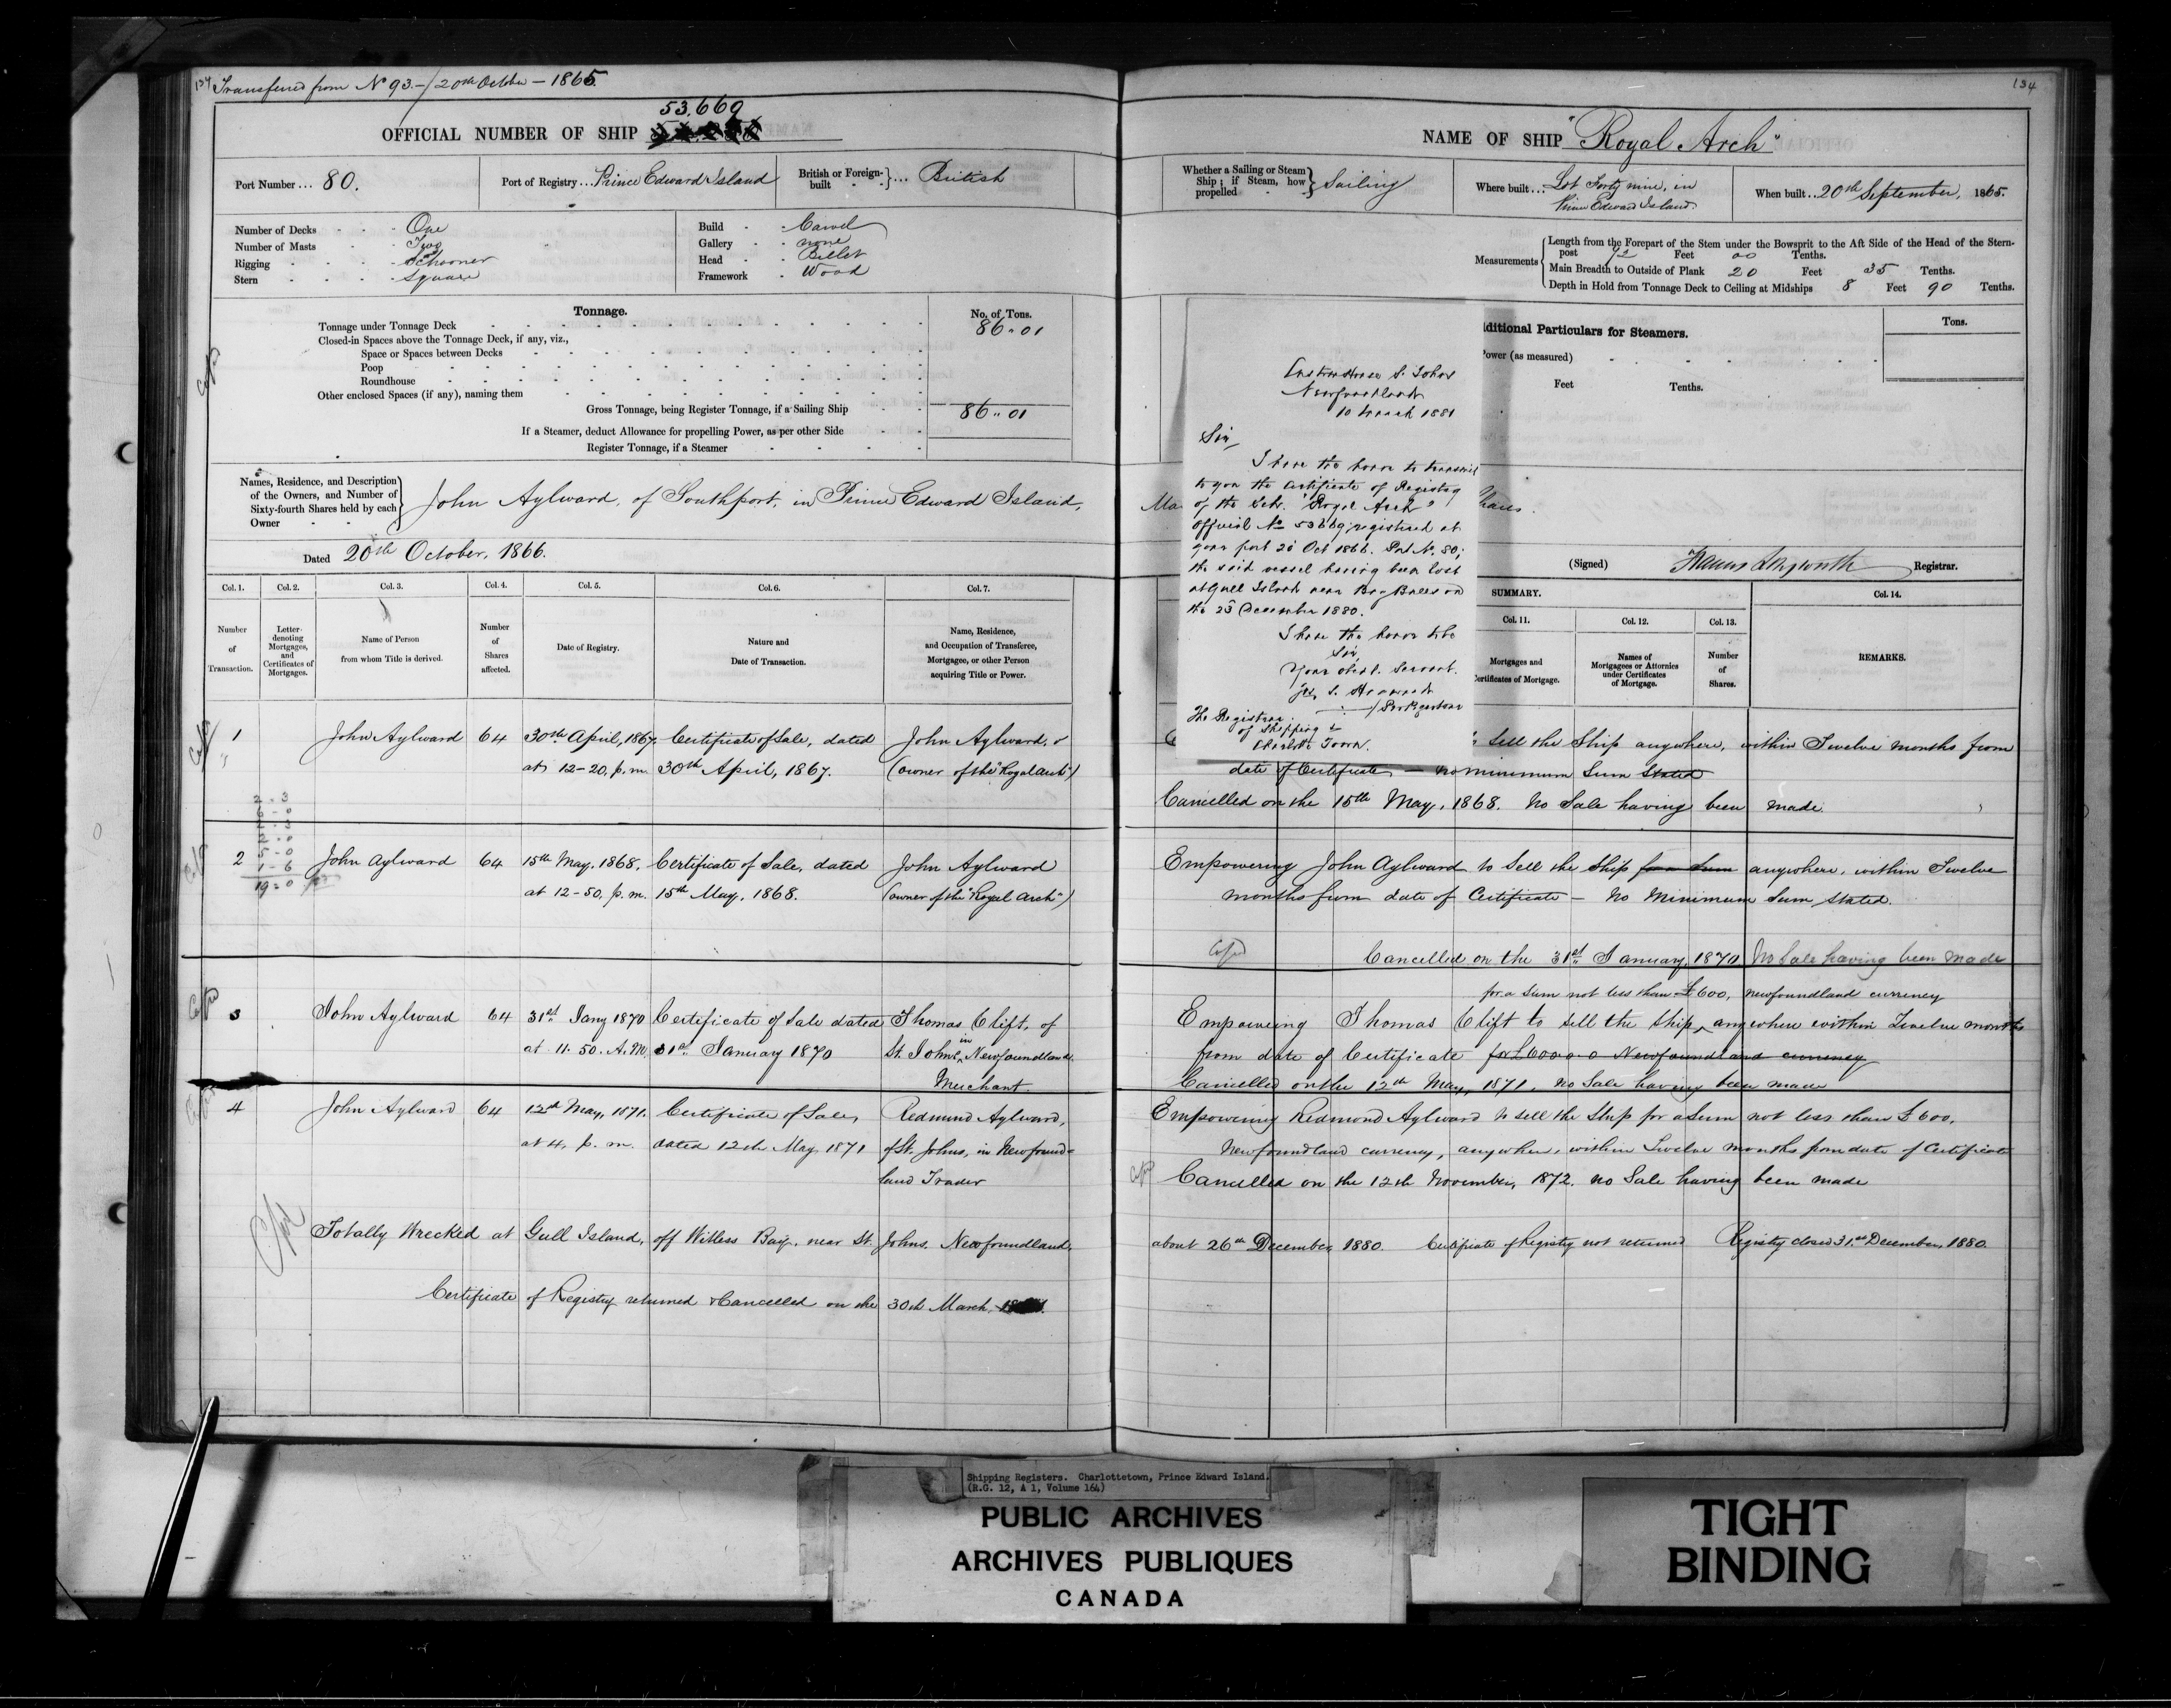 134 Transferred from No 93.-/20th October - 1865.
53.669
OFFICIAL NUMBER OF SHIP
Port Number ... 80.
Port of Registry ... Prince Edward Island
British or Foreign-built } ... British
Number of Decks - - - One
Number of Masts - - - Two
Rigging - - - - Schooner
Stern - - - - Square
Build - - Carvel
Gallery - - none
Head - - Billet
Framework - Wood
Tonnage.
No. of Tons.
Tonnage under Tonnage Deck 86.. 01
Closed-in Spaces above the Tonnage Deck, if any, viz.,
Space or Spaces between Decks
Poop
Roundhouse
Other enclosed Spaces (if any), naming them
Gross Tonnage, being Register Tonnage, if a Sailing Ship 86.. 01
If a Steamer, deduct Allowance for propelling Power, as per other Side
Register Tonnage, if a Steamer
Names, Residence, and Description
of the Owners, and Number of
Sixty-fourth Shares held by each
Owner
John Aylward, of Southport, in Prince Edward Island,
Dated 20th October, 1866.
Col. 1. Col. 2. Col. 3. Col. 4. Col. 5. Col. 6. Col. 7.
Number of Transaction.
Letter denoting Mortgages, and Certificates of Mortgages.
Name of Person from whom Title is derived.
Number of Shares affected.
Date of Registry.
Nature and Date of Transaction.
Name, Residence, and Occupation of Transferee, Mortgagee, or other Person acquiring Title or Power.
1 John Aylward 64 30th April, 1867. Certificate of Sale, dated John Aylward,
at 12-20, p.m. 30th April, 1867. (owner of the "Royal Arch")
2 - 3
6 - 0
2 - 0
5 - 0
1 - 6
19 - 0
2 John Aylward 64 15th May, 1868. Certificate of Sale, dated John Aylward
at 12-50, p.m. 15th May, 1868. (owner of the "Royal Arch")
3 John Aylward 64 31st Jany 1870 Certificate of Sale dated Thomas Clift, of
at 11. 50. A.M. 31st January 1870 St. Johns, in Newfoundland
Merchant.
4 John Aylward 64 12th May, 1871. Certificate of Sale, Redmund Aylward,
at 4, p.m. dated 12th May, 1871 of St. Johns, in Newfound=
land Trader
Totally Wrecked at Gull Island, off Witless Bay, near St. Johns. Newfoundland,
Certificate of Registry returned & Cancelled on the 30th March,
134
NAME OF SHIP "Royal Arch"
Whether a Sailing or Steam Ship; if Steam, how propelled } Sailing
Where built ... Lot Forty nine, in
Prince Edward Island.
When built .. 20th September, 1865.
Measurements
Length from the Forepart of the Stem under the Bowsprit to the Aft Side of the Head of the Stern-
post 72 Feet 00 Tenths.
Main Breadth to Outside of Plank 20 Feet 35 Tenths.
Depth in Hold from Tonnage Deck to Ceiling at Midships 8 Feet 90 Tenths.
ditional Particulars for Steamers.
Tons.
Power (as measured)
Feet Tenths.
Custom House St. Johns
Newfoundland
10 March 1881
Sir
I have the honor to transmit
to you the Certificate of Registry
of the Schr. "Royal Arch"
Official No 53669 registered at
your port 20 Oct 1866. Port No. 80;
the said vessel having been lost
at Gull Island near Bay Bulls on
the 25 December 1880.
I have the honor to be
Sir,
Your obedt. Servant.
The Registrar
of Shipping &
Charlotte Town.
(Signed) Registrar.
SUMMARY.
Col. 11. Col. 12. Col. 13. Col. 14.
Mortgages and
Certificates of Mortgage.
Names of
Mortgagees or Attornies
under Certificates
of Mortgage.
Number
of
Shares.
REMARKS.
sell the Ship anywhere, within Twelve months from
date of Certificate - no minimum Sum Stated
Cancelled on the 15th May, 1868. No Sale having been made.
Empowering John Aylward to sell the Ship for a Sum anywhere, within Twelve
months from date of Certificate - No Minimum Sum Stated.
Cancelled on the 31st January, 1870 No Sale having been made
for a sum not less than £600, newfoundland currency
Empowering Thomas Clift to sell the Ship, anywhere within Twelve months
from date of Certificate for £600-0-0 Newfoundland currency
Cancelled on the 12th May, 1871, no Sale having been made
Empowering Redmond Aylward to sell the Ship for a Sum not less than £600,
Newfoundland currency, anywhere, within Twelve months from date of Certificate
Cancelled on the 12th November, 1872. no Sale having been made
about 26th December, 1880. Certificate of Registry not returned Registry closed 31st December, 1880.
Shipping Registers. Charlottetown, Prince Edward Island.
(R.G. 12, A 1, Volume 164)
PUBLIC ARCHIVES
ARCHIVES PUBLIQUES
CANADA
TIGHT
BINDING